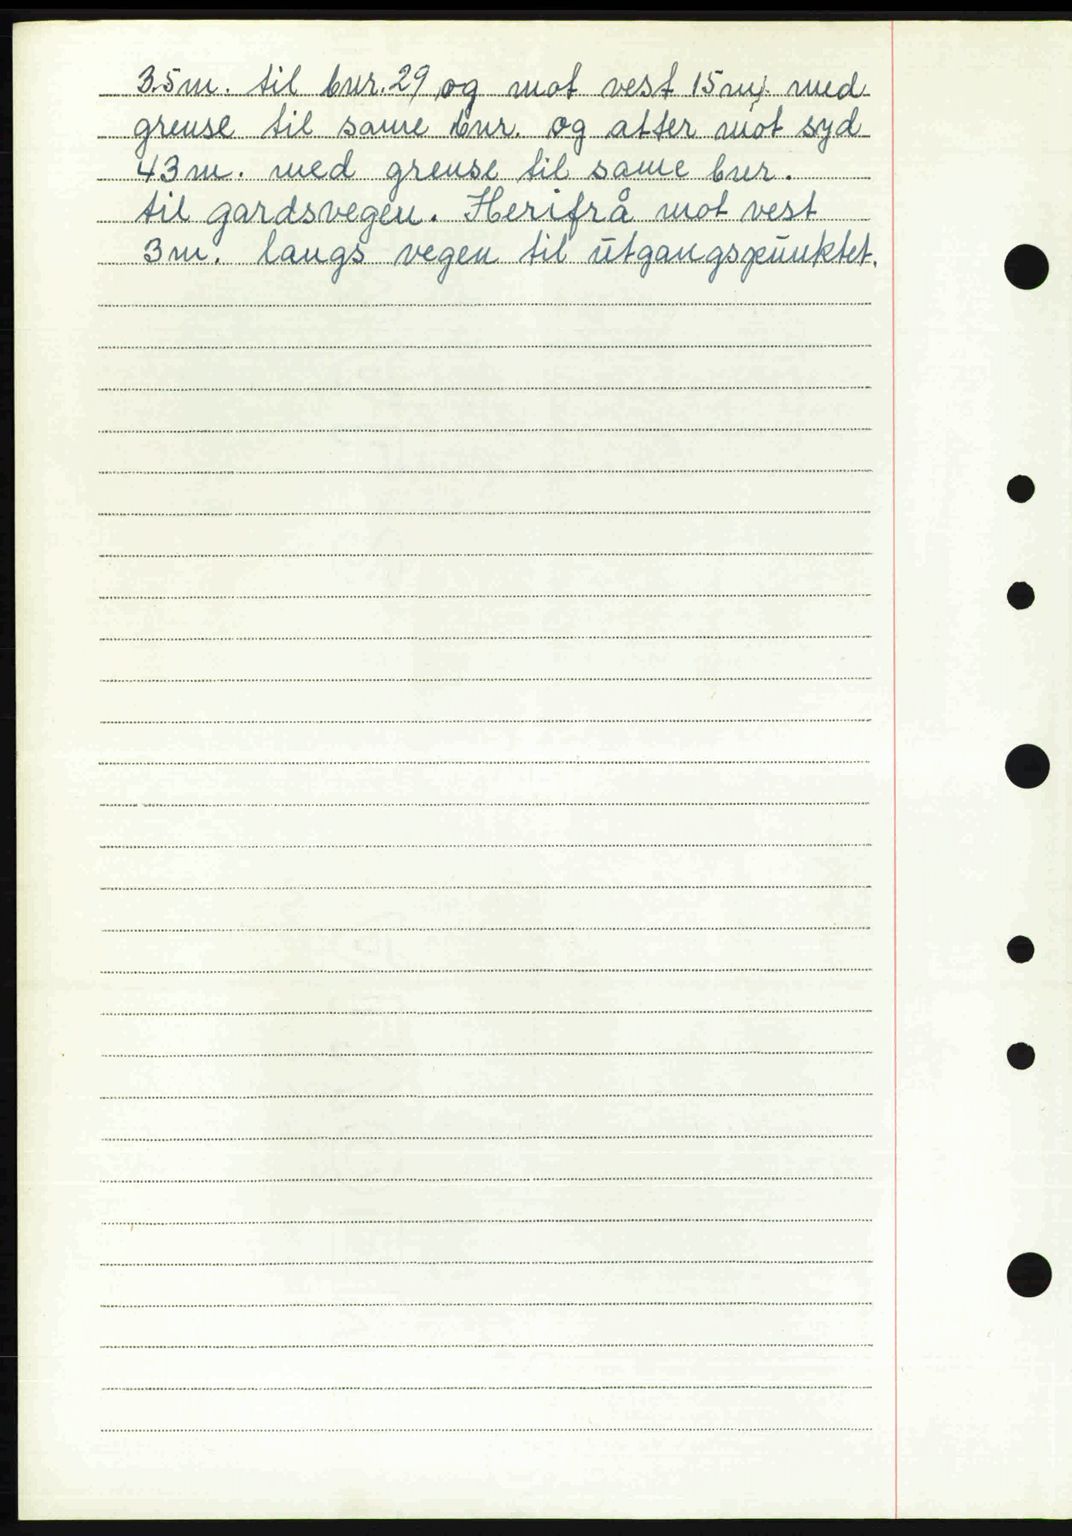 3.5m. til bnr. 29 og mot vest 15m. med
grense til same bnr. og atter mot syd
43m. med grense til same bnr.
til gardsvegen. Herifrå mot vest
3m. langs vegen til utgangspunktet.